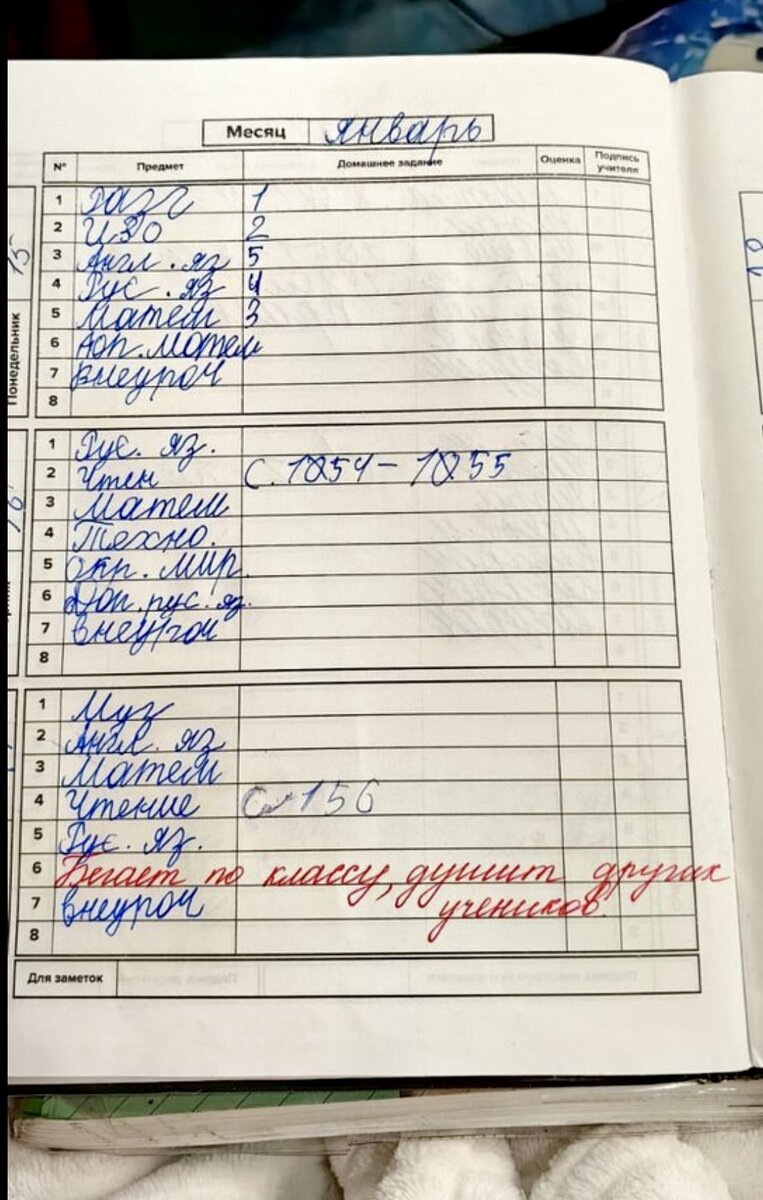 Месяц январь
№ Предмет Домашнее задание Оценка Подпись учителя
15
Понедельник
1 Разг 1
2 ИЗО 2
3 Англ. яз 5
4 Рус. яз 4
5 Матем 3
6 Доп. матем
7 внеуроч
8
16
1 Рус. яз.
2 Чтен С. 154 - 155
3 Матем
4 Техно.
5 окр. мир.
6 Доп. рус. яз.
7 внеуроч
8
1 Муз
2 Англ. яз
3 Матем
4 Чтение С 156
5 Рус. яз.
6 Бегает по классу, душит других
7 внеуроч учеников.
8
Для заметок